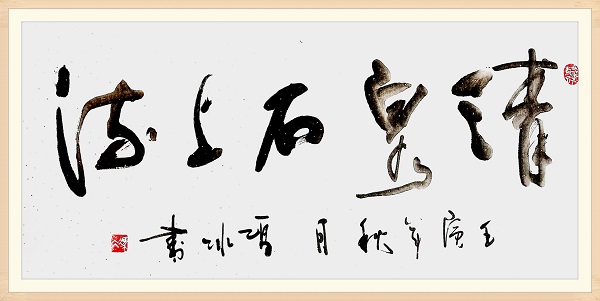 清泉石上流
壬寅年秋月 冰书